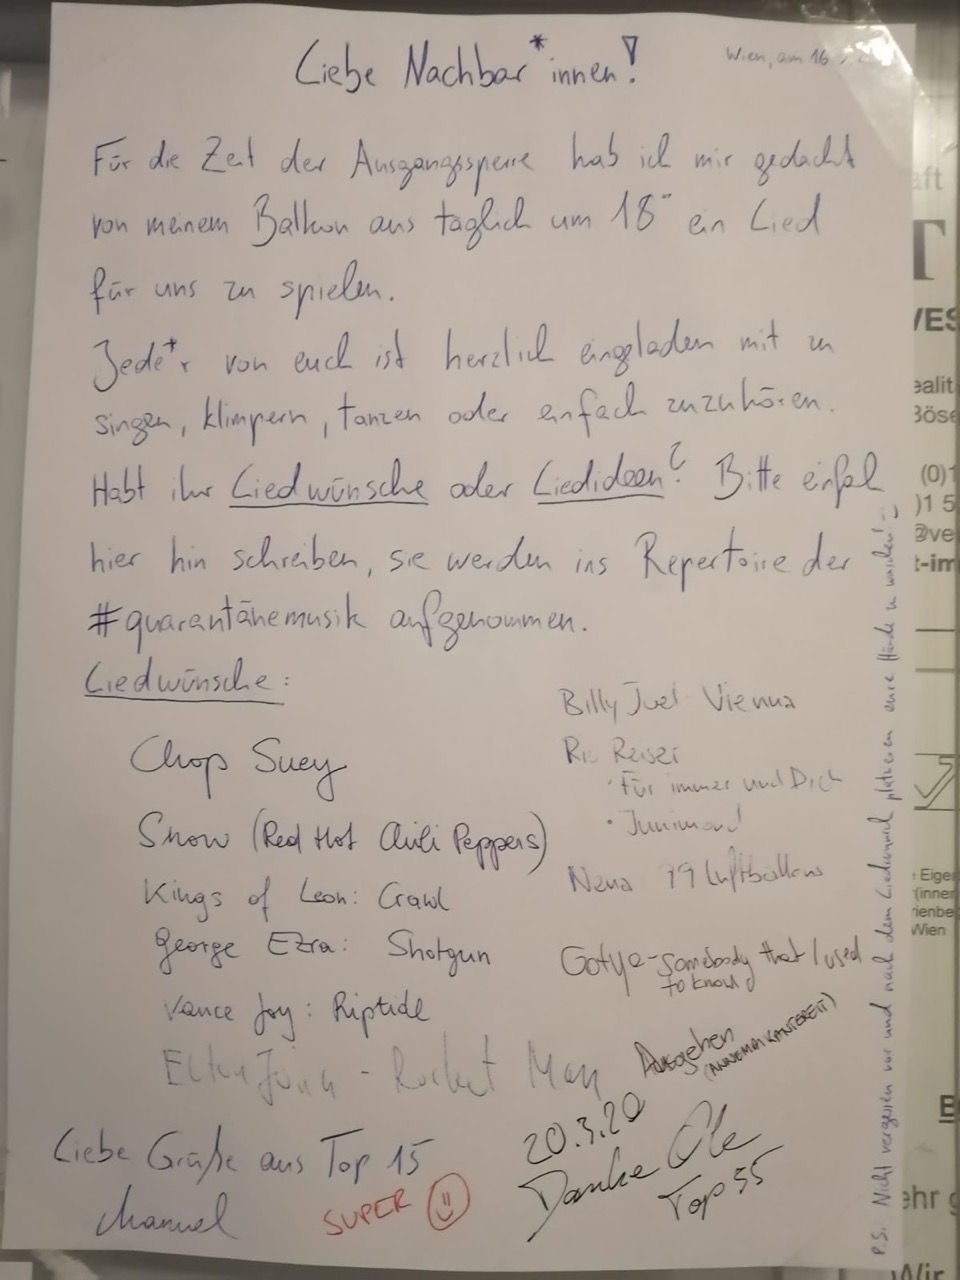 Liebe Nachbar*innen!
Wien, am 16
Für die Zeit der Ausgangssperre hab ich mir gedacht
von meinem Balkon aus täglich um 18 ein Lied
für uns zu spielen.
Jede*r von euch ist herzlich eingeladen mit zu
singen, klimpern, tanzen oder einfach zuzuhören.
Habt ihr Liedwünsche oder Liedideen? Bitte
hier hin schreiben, sie werden ins Repertoire der
#quarantänemusik aufgenommen.
Liedwünsche:
Chop Suey
Snow (Red Hot Chili Peppers)
Kings of Leon: Crawl
George Ezra: Shotgun
Vance Joy: Riptide
Elton John - Rocket Man
Billy Joel Vienna
Rio Reiser
· Für immer und Dich
· Junimond
Nena 99 Luftballons
Gotye - somebody that I used
to know
Ausgehen
(ANNENMAYKANTEREIT)
20.3.20
Danke Ole
Top 55
Liebe Grüße aus Top 15
SUPER
P.S. Nicht vergessen vor und nach dem eure Hände zu waschen! ;)
VES
ealit
Böse
(0)1
)1 5
@ve
t-im
Eige
(inner
rienbe
Wien
ehr g
Wir